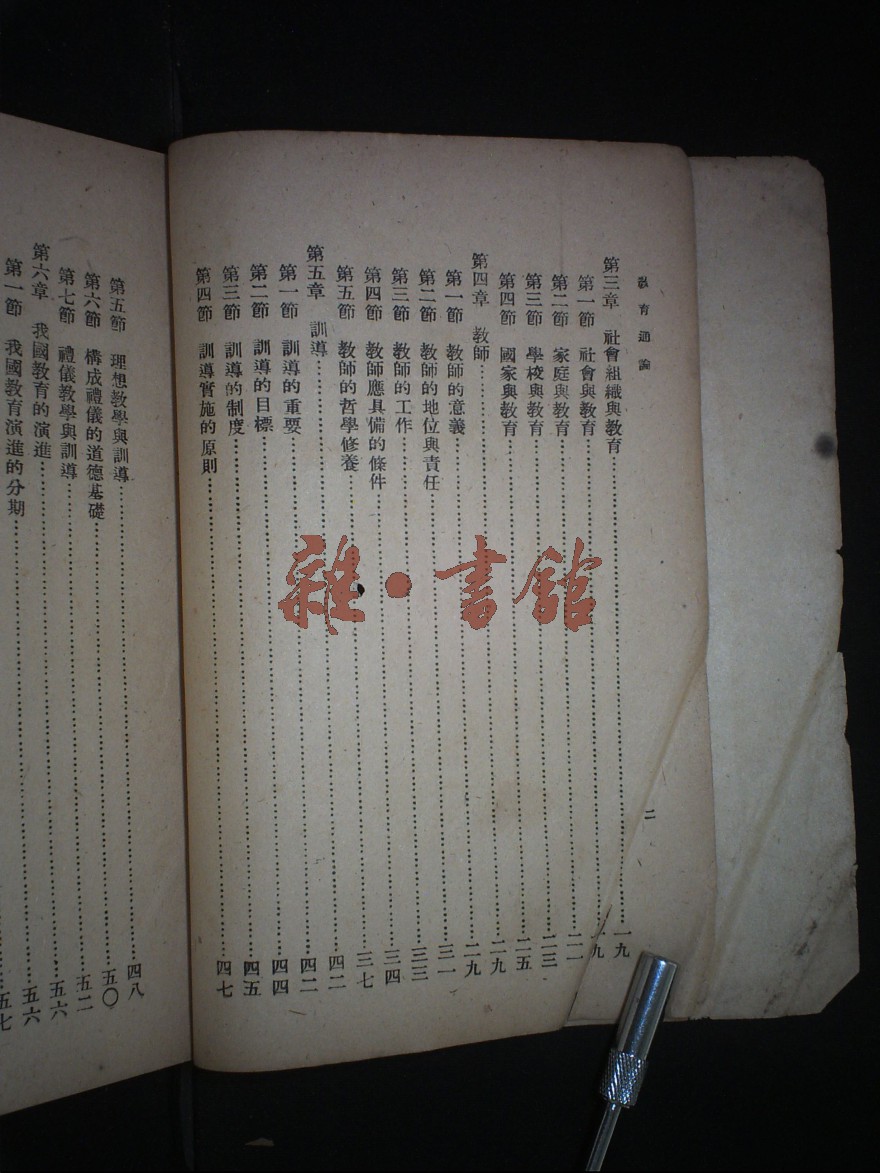 教育通論
第三章 社會組織與教育……一九
第一節 社會與教育……一九
第二節 家庭與教育……二一
第三節 學校與教育……二三
第四節 國家與教育……二五
第四章 教師……二九
第一節 教師的意義……二九
第二節 教師的地位與責任……三一
第三節 教師的工作……三三
第四節 教師應具備的條件……三四
第五節 教師的哲學修養……三七
第五章 訓導……四二
第一節 訓導的重要……四二
第二節 訓導的目標……四四
第三節 訓導的制度……四五
第四節 訓導實施的原則……四七
二
第五節 理想教學與訓導……四八
第六節 構成禮儀的道德基礎……五〇
第七節 禮儀教學與訓導……五二
第六章 我國教育的演進……五六
第一節 我國教育演進的分期……五六
五七
雜·書館